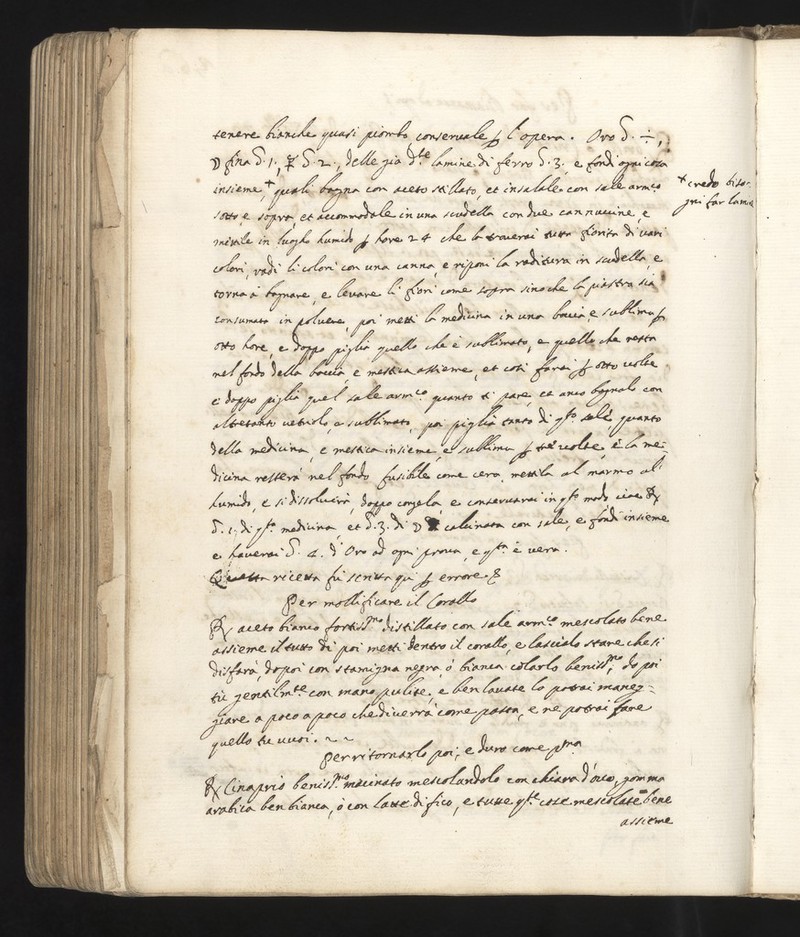 tenere bianche quasi piombo, conservale ꝑ l'opera. Oro
fina 1., 2., delle già d.te lamine di ferro 3. e fondi ogni cosa
insieme,+ quali bagna con aceto stillato, et insalale con sale arm.co
sotto e sopra, et accommodale in una scudella con due cannuccine, e
mettile in luogho humido ꝑ hore 24 che le troverai tutta fiorita di vari
colori, radi li colori con una canna, e riponi la raditura in scudella, e
torna à bagnare, e levare li fiori come sopra sino che la piastra sia
consumata in polvere, poi metti la medicina in una boccia, e sublima ꝑ
otto hore, e doppo piglia quello che è sublimato, e quello che resta
nel fondo della boccia e mestica assieme, et così farai ꝑ otto volte
e doppo piglia quel sale arm.co quanto ti pare, et anco bagnalo con
altretanto vetriolo, e sublimato, poi piglia tanto di q.to sale quanto
della medicina, e mestica insieme, e sublima ꝑ tre volte, e la me=
dicina resterà nel fondo fusibile come cera, mettila al marmo al'
humido, e si dissolverà, doppo congela, e conservarai in q.to modo cioe ℞
1. di q.ta medicina, et 3. di calcinata con sale, e fondi insieme
e haverai 4. d'Oro ad ogni prova, e q.ta è vera.
Questa ricetta fù scritta qui ꝑ errore.
Per mollificare il Corallo
℞ aceto bianco fortiss.mo distillato con sale arm.co mescolato bene
assieme il tutto di poi metti dentro il corallo, e lascialo stare che si
disfarà, dopoi con stamigna negra, ò bianca colarlo beniss.mo, do poi
tù gentilm.te con mano pulite, e ben lavate lo potrai maneg=
giare a poco a poco che diverrà come pasta, e ne potrai fare
quello tu vuoi. ~ ~
Per ritornarlo poi, e duro come p.ma
℞ Cinaprio beniss.mo macinato mescolandolo con chiara d'ovo, gomma
arabica ben bianca, ò con latte di fico, e tutte q.te cose mescolate bene
assieme
+ credo biso=
gni far lame